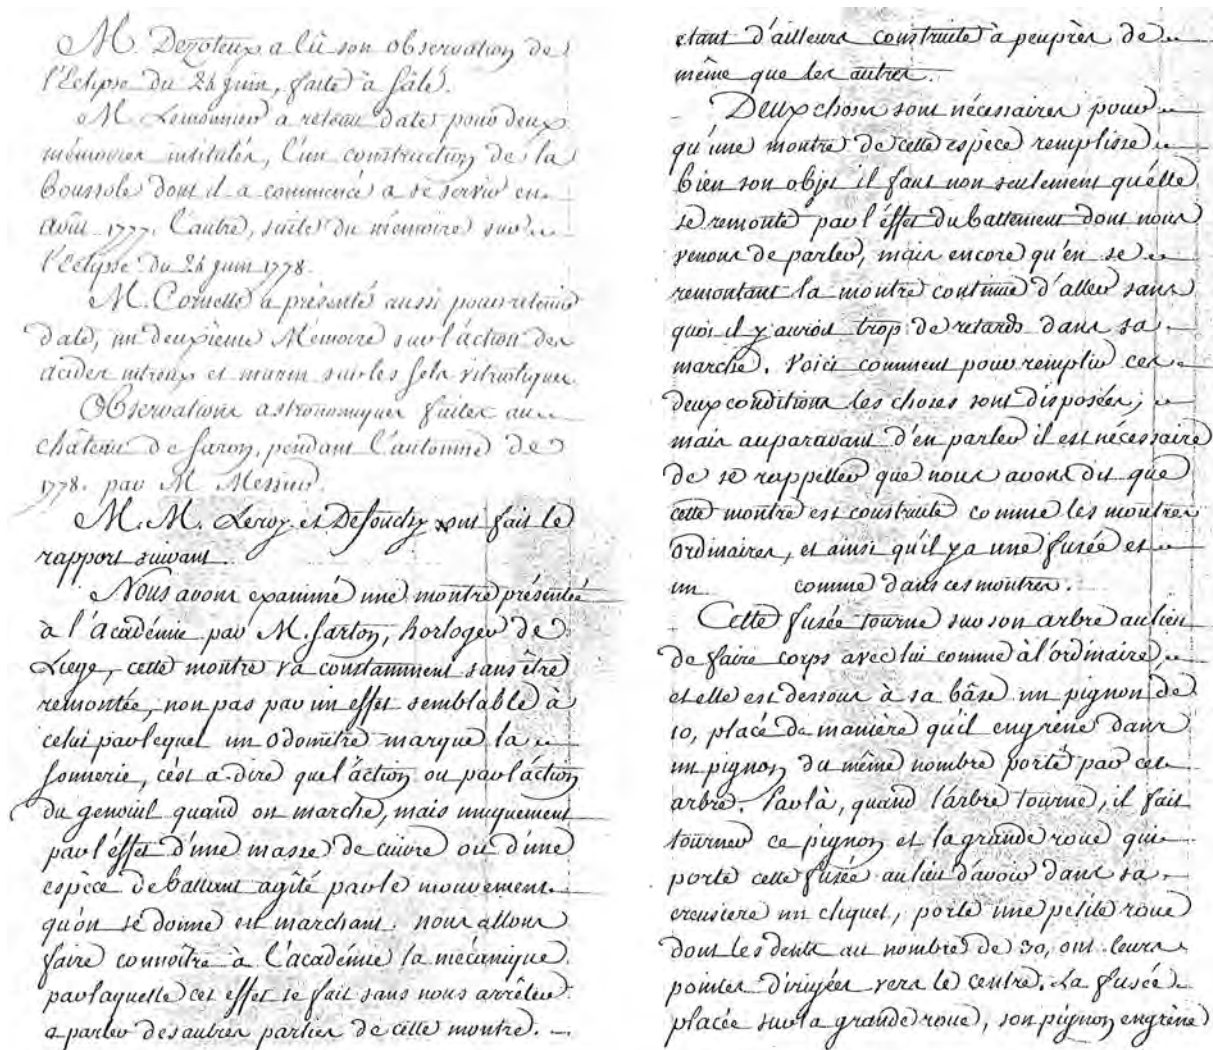 M. Dezoteux a lû son observation de
l'Eclipse du 24 juin, faite à Salé.
M. Lemonnier a retenu date pour deux
mémoires intitulés, l'un construction de la
Boussole dont il a commencé a se servir en
Août 1777. l'autre, suite du mémoire sur
l'Eclipse du 24 juin 1778.
M. Cornette a présenté aussi pour retenir
date, un deuxième Mémoire sur l'action des
acides nitreux et marin sur les sels vitrioliques.
Observations astronomiques faites au
château de Saron, pendant l'automne de
1778. par M. Messier.
M. M. Leroy et Defouchy ont fait le
rapport suivant.
Nous avons examiné une montre présentée
à l'académie par M. Sarton, horloger de
Liege, cette montre va constamment sans être
remontée, non pas par un effet semblable à
celui par lequel un Odomètre marque la
sonnerie, c'est a-dire que l'action ou par l'action
du genouil quand on marche, mais uniquement
par l'effet d'une masse de cuivre ou d'une
espèce de battant agité par le mouvement
qu'on se donne en marchant. nous allons
faire connoître à l'académie la mécanique
par laquelle cet effet se fait sans nous arrêter
a parler des autres parties de cette montre.
etant d'ailleurs construite à peuprès de
même que les autres.
Deux choses sont nécessaires pour
qu'une montre de cette espèce remplisse
bien son objet il faut non seulement qu'elle
se remonte par l'effet du battement dont nous
venons de parler, mais encore qu'en se
remontant la montre continue d'aller sans
quoi il y auroit trop de retards dans sa
marche. Voici comment pour remplir ces
deux conditions les choses sont disposées;
mais auparavant d'en parler il est nécessaire
de se rappeller que nous avons dit que
cette montre est construite comme les montres
ordinaires, et ainsi qu'il y a une fusée et
un comme dans ces montres.
Cette fusée tourne sur son arbre au lieu
de faire corps avec lui comme à l'ordinaire,
et elle est dessous à sa bâse un pignon de
10, placé de manière qu'il engrène dans
un pignon du même nombre porté par cet
arbre. Par là, quand l'arbre tourne, il fait
tourner ce pignon et la grande roue qui
porte cette fusée au lieu d'avoir dans sa
creusiere un cliquet, porte une petite roue
dont les dents au nombre de 30, ont leurs
pointes dirigées vers le centre. La fusée
placée sur la grande roue, son pignon engrène